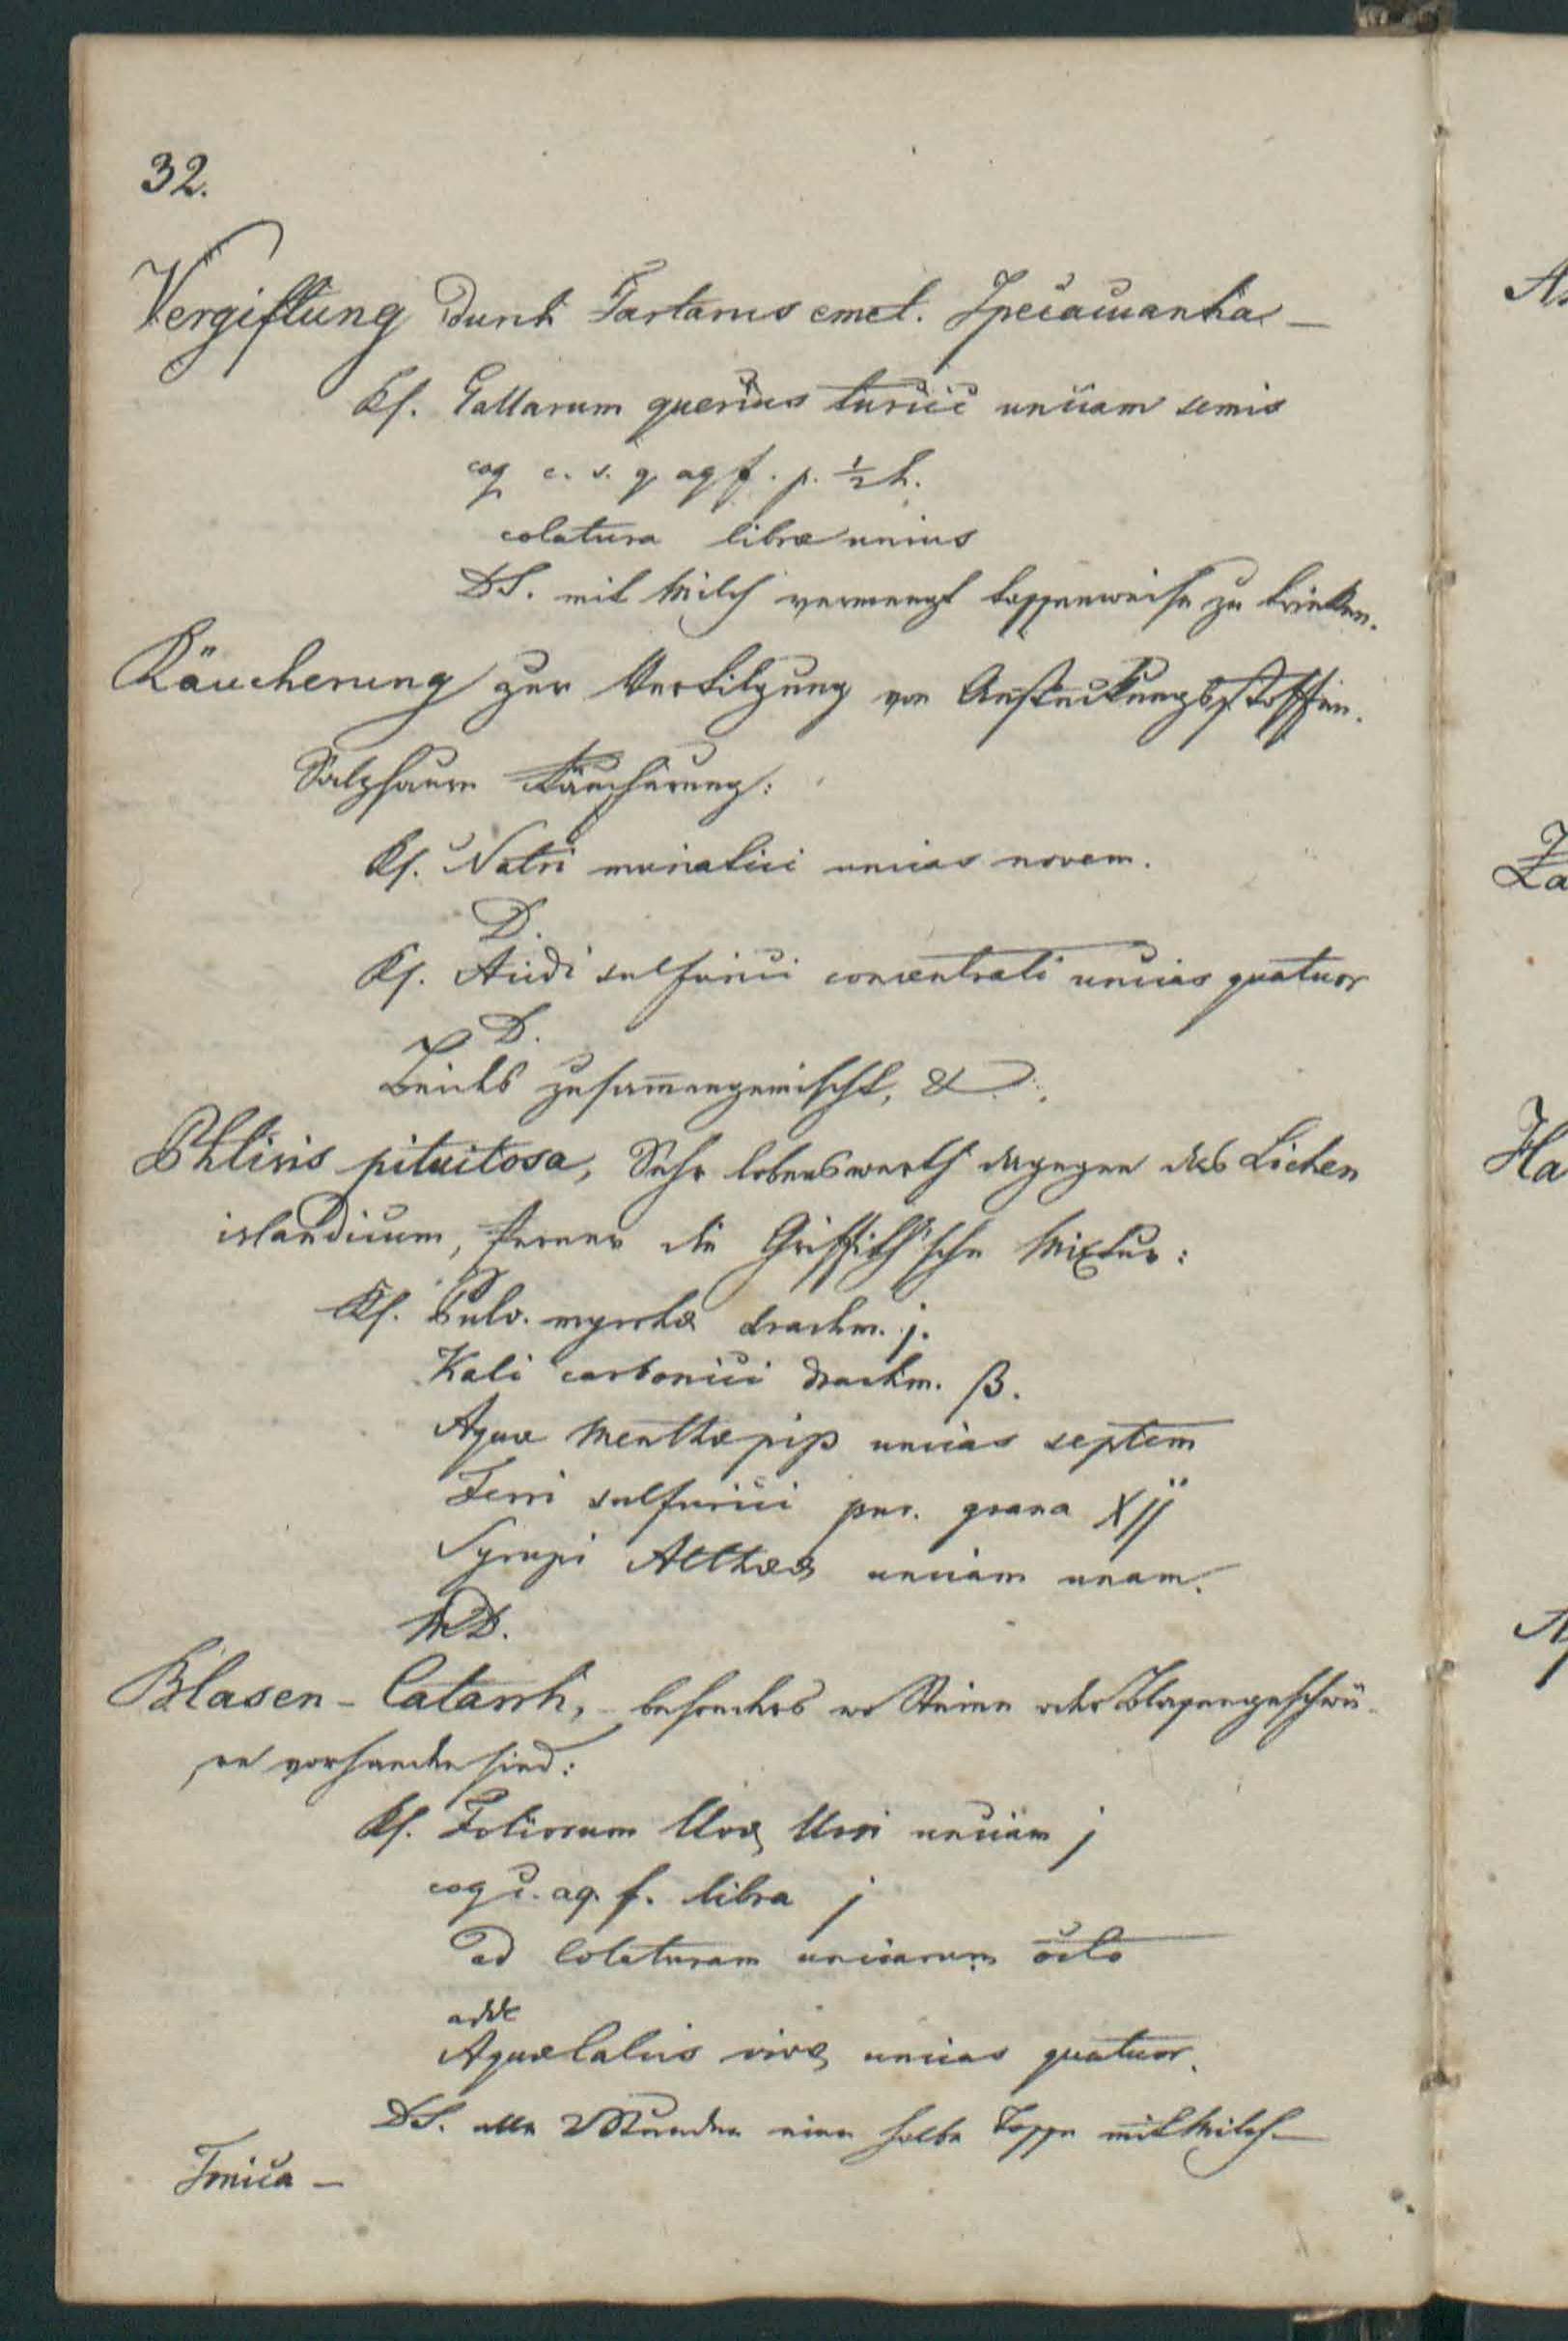 32.
Vergiftung durch Tartarus emet. Ipecacuanha –
Rf. Gallarum quercus turcic unciam semis
coq c. s. q. aq f. p. ½ h.
colatura libræ unius
DS. mit Milch vermengt tassenweise zu trinken.
Räucherung zur Vertilgung von Ansteckungsstoffen.
Salzsaure Räucherung:
Rf. Natri muriatici uncias novem.
D.
Rf. Acidi sulfurici concentrati uncias quatuor
D.
zusam̅engemischt, &
Phtisis pituitosa, Sehr lobenswerth dagegen das Lichen
islandicum, ferner die Griffith'sche Mixtur:
Rf. Pulv. myrrhæ drachm. j.
Kali carbonici drachm. ß.
Aquæ Menthæ pip uncias septem
Ferri sulfurici pur. grana Xjj
Syrupi Altheæ unciam unam.
MD.
Blasen-Catarrh, besonders wo Steine oder Blasengeschwü-
re vorhanden sind:
Rf. Foliorum Uvæ Ursi unciam j
coq c. aq. f. libra j
ad Colaturam unciarum octo
adde
Aquæ Calcis vivæ uncias quatuor.
DS. alle 2 Stunden eine halbe Tasse mit Milch –
Tonica –
A
Za
Ha
A